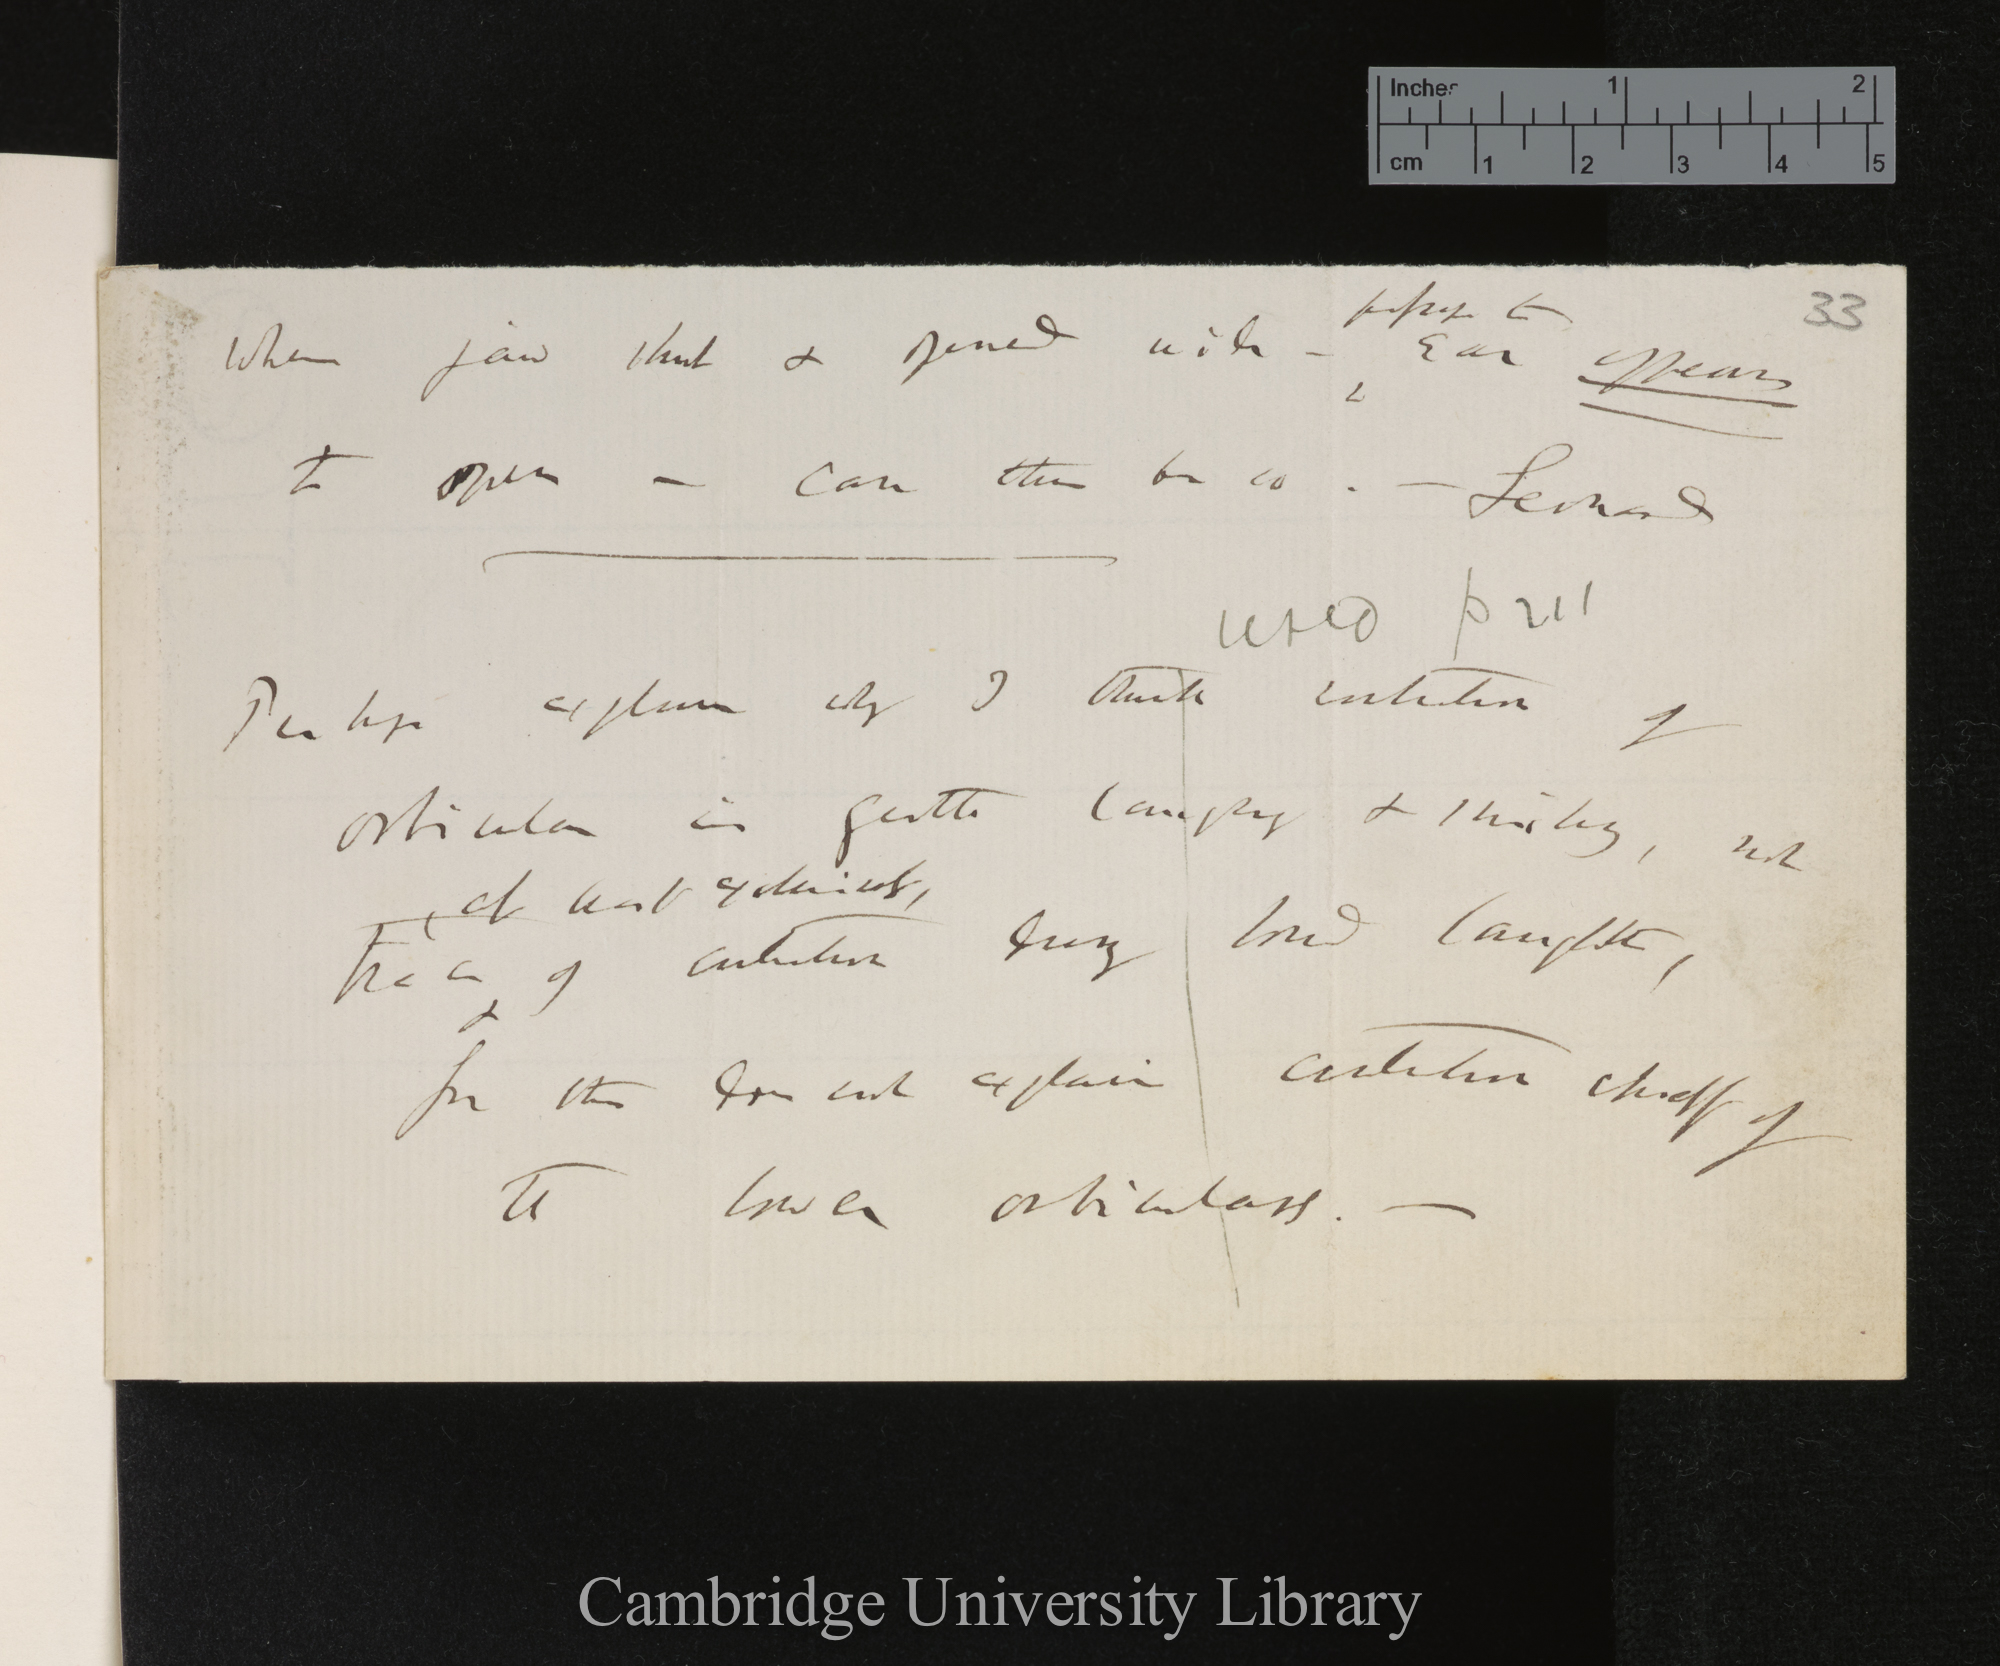 Inches 1 2
cm 1 2 3 4 5
33
perhaps to
When jaw shut & opened wide – Ear appears
to open – Can this be so. — Leonard
Used p 211
Perhaps explain why I think contraction of
orbicular in gentle laughing & smiling, not
, at least exclusively,
trace of contraction during loud laughter,
&
for this does not explain contraction chiefly of
the lower orbiculars. —
Cambridge University Library